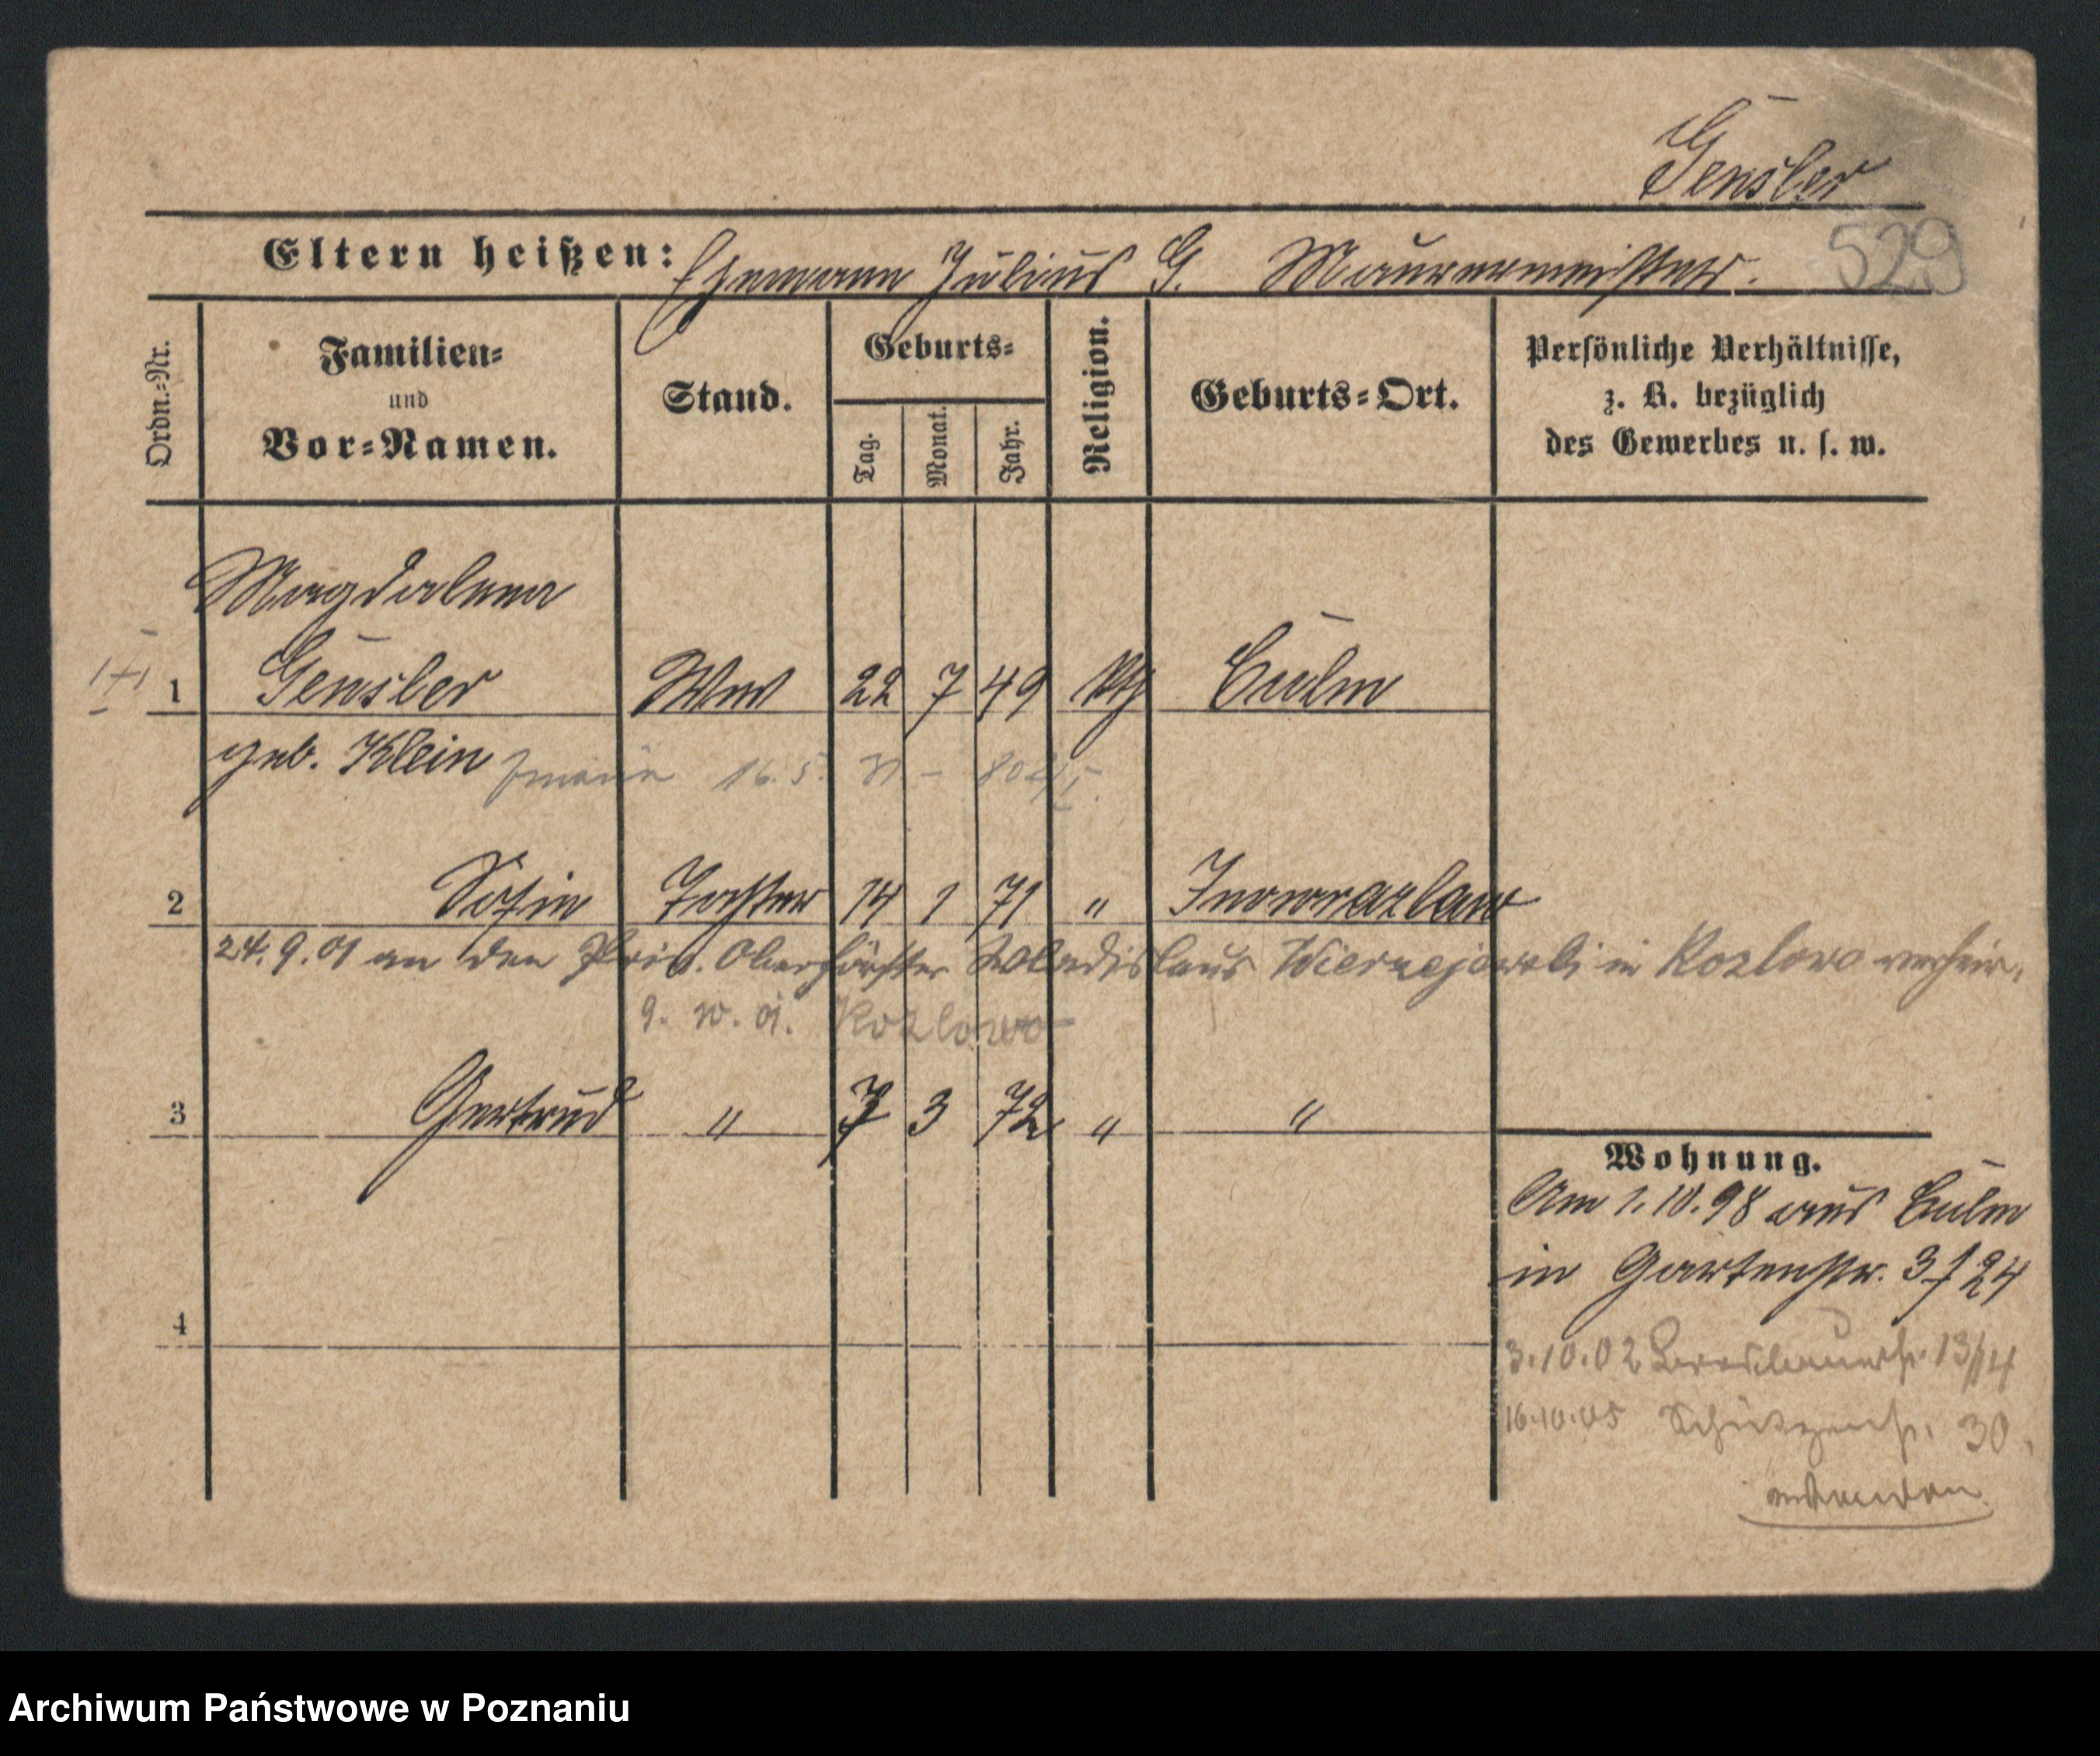 Gensler
Eltern heißen: Ehemann Julius G. Maurermeister.
529
Ordn.=Nr.
Familien=
und
Vor=Namen.
Stand.
Geburts=
Tag.
Monat.
Jahr.
Religion.
Geburts=Ort.
Persönliche Verhältnisse,
z. B. bezüglich
des Gewerbes u. s. w.
Magdalena
1 Gensler Ww 22 7 49 kth Culm
geb. Klein 16. 5.
2 Sofie Tochter 14 1 71 " Inowrazlaw
24. 9. 01 an den Priv. Oberförster Wladislaus Wierzejewski in Kozlowo verheir.
9. 10. 01. Kozlowo
3 Gertrud " 7 3 72 " "
Wohnung.
Am 1. 10. 98 aus Culm
in Gartenstr. 3 / 24
4
3.10.02 13/14
16.10.05 Schützenstr. 30.
Archiwum Państwowe w Poznaniu